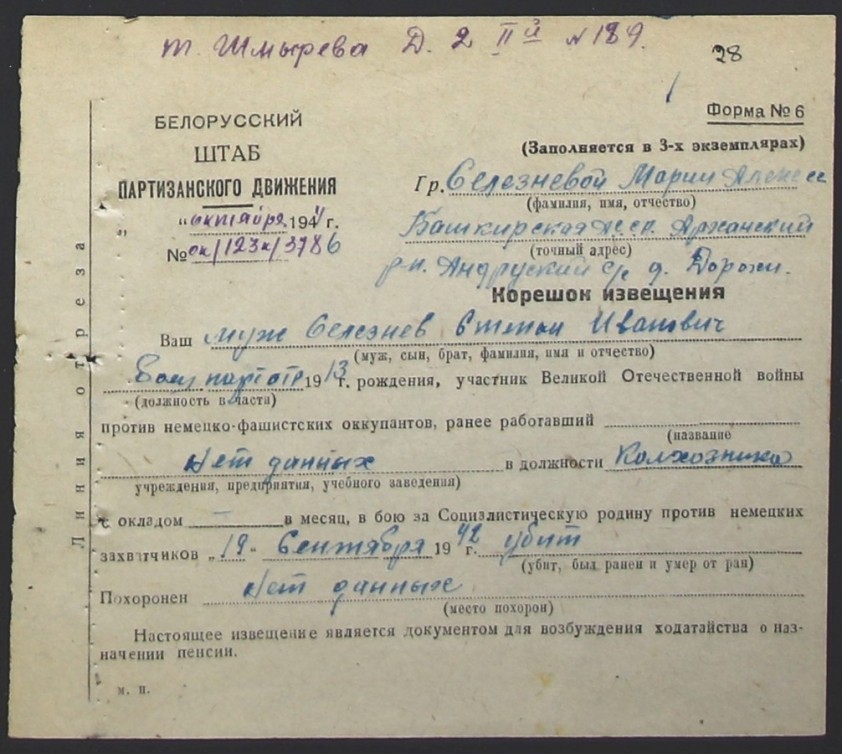 т. Шмырева Д. 2 II й № 189.
28
Форма № 6
(Заполняется в 3-х экземплярах)
БЕЛОРУССКИЙ
ШТАБ
ПАРТИЗАНСКОГО ДВИЖЕНИЯ
„ “ октября 1944 г.
№ ок/123к/3786
Гр. Селезневой Марии Алексе
(фамилия, имя, отчество)
Башкирская
(точный адрес)
р-н. с/с д.
Корешок извещения
Ваш муж Селезнев Степан Иванович
(муж, сын, брат, фамилия, имя и отчество)
Боец 1913 г. рождения, участник Великой Отечественной войны
(должность в части)
против немецко-фашистских оккупантов, ранее работавший
(название
Нет данных в должности Колхозника
учреждения, предприятия, учебного заведения)
с окладом — в месяц, в бою за Социалистическую родину против немецких
захватчиков „19“ Сентября 1942 г. убит
(убит, был ранен и умер от ран)
Похоронен Нет данных
(место похорон)
Настоящее извещение является документом для возбуждения ходатайства о наз-
начении пенсии.
м. п.
Линия отреза